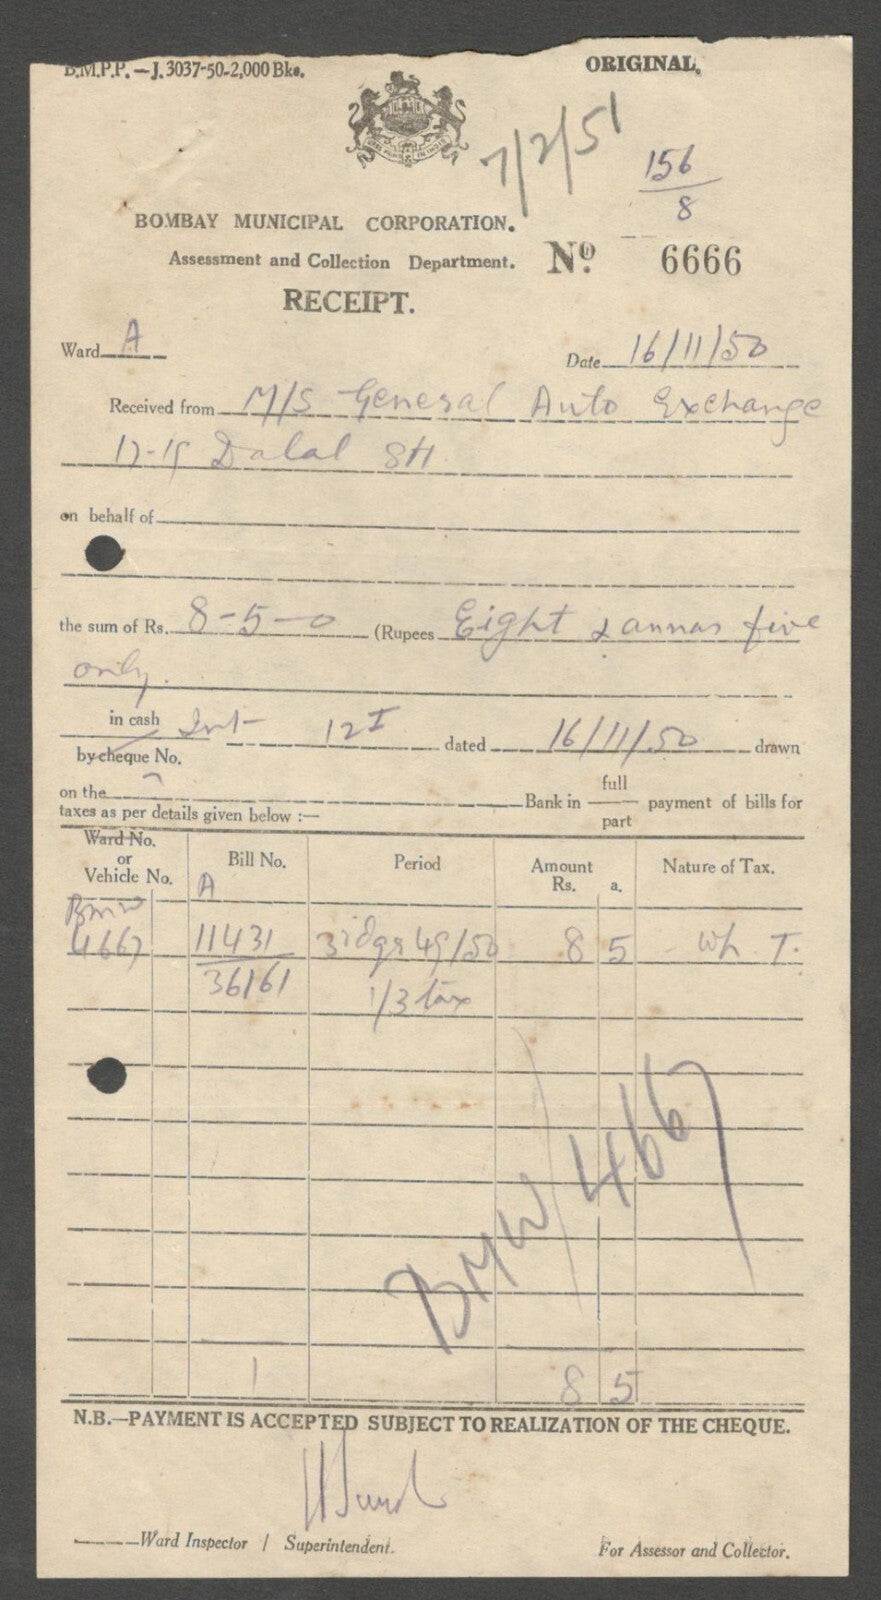 B.M.P.P.—J. 3037-50-2,000 Bks.
ORIGINAL.
7/2/51
156
8
BOMBAY MUNICIPAL CORPORATION.
Assessment and Collection Department. No. 6666
RECEIPT.
Ward A Date 16/11/50
Received from M/S General Auto Exchange
Dalal
on behalf of
the sum of Rs. 8-5-0 (Rupees Eight & annas five
only.
in cash
by cheque No. 12 I dated 16/11/50 drawn
on the Bank in full part payment of bills for
taxes as per details given below :—
Ward No. or Vehicle No. Bill No. Period Amount Rs. a. Nature of Tax.
A
4667 11431 49/50 8 5 Wh. T.
36161 1/3 tax
BMW 4667
1 8 5
N.B.—PAYMENT IS ACCEPTED SUBJECT TO REALIZATION OF THE CHEQUE.
Ward Inspector / Superintendent. For Assessor and Collector.